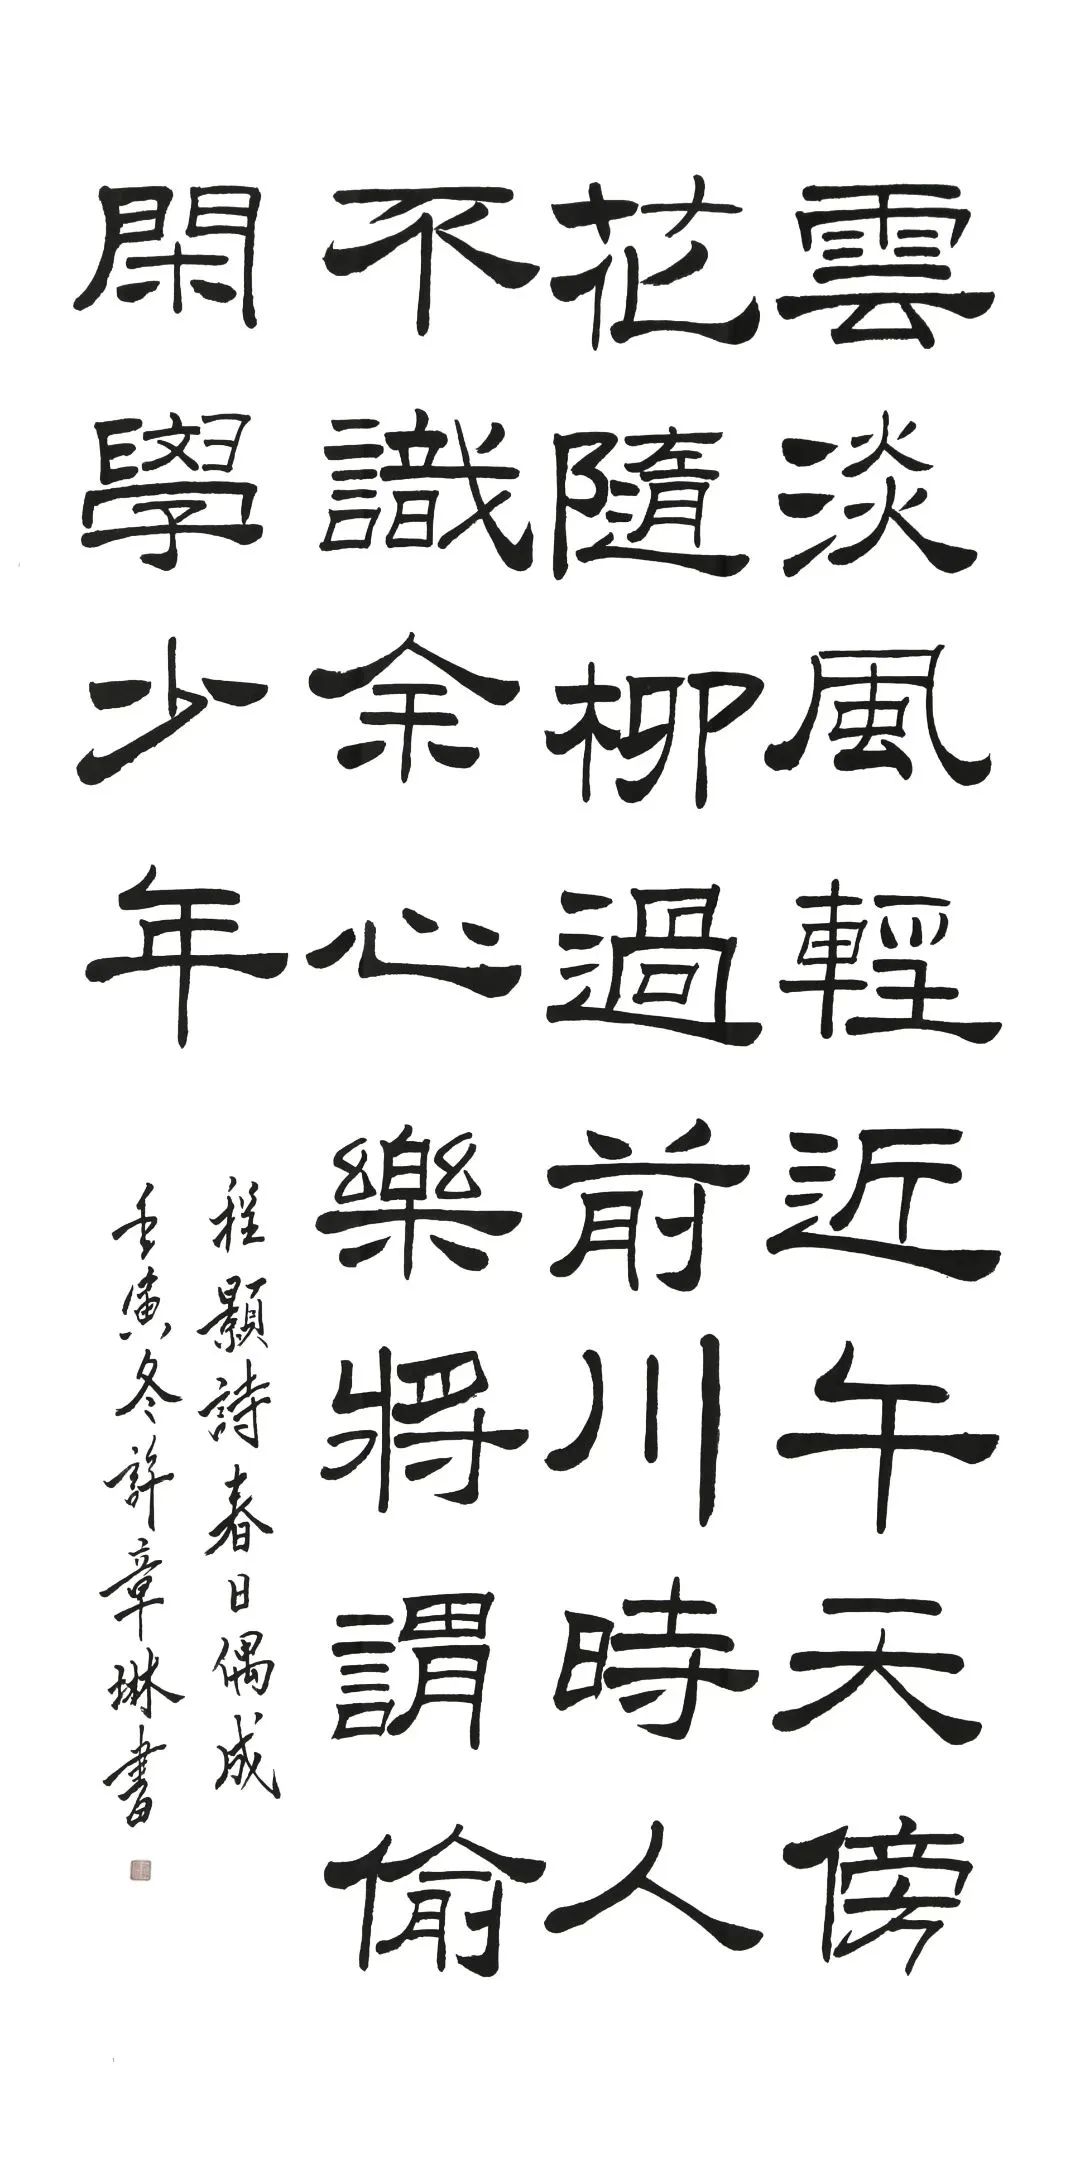 雲淡風輕近午天傍
花隨柳過前川時人
不識余心樂將謂偷
閑學少年
程顥詩春日偶成
壬寅冬許章琳書